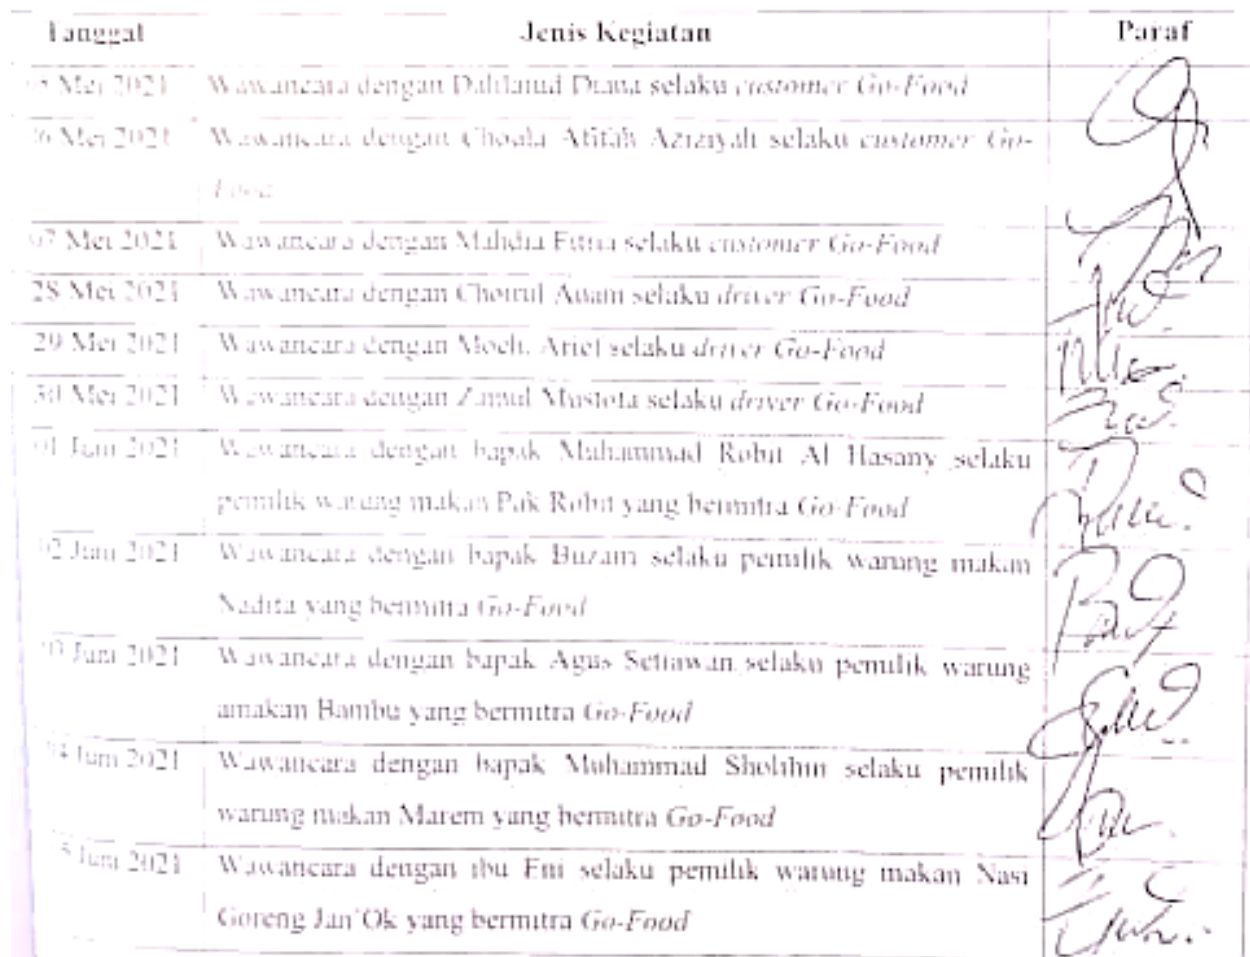 Tanggal Jenis Kegiatan Paraf
Mei 2021 Wawancara dengan Diana selaku customer Go-Food
Mei 2021 Wawancara dengan Afifah Aziziyah selaku customer Go-
Food
07 Mei 2021 Wawancara dengan Mahdia Fitria selaku customer Go-Food
28 Mei 2021 Wawancara dengan Choirul Anam selaku driver Go-Food
29 Mei 2021 Wawancara dengan Moch. Arief selaku driver Go-Food
30 Mei 2021 Wawancara dengan Zainul Mustofa selaku driver Go-Food
01 Juni 2021 Wawancara dengan bapak Muhammad Robit Al Hasany selaku
pemilik warung makan Pak Robit yang bermitra Go-Food
02 Juni 2021 Wawancara dengan bapak selaku pemilik warung makan
Nadita yang bermitra Go-Food
03 Juni 2021 Wawancara dengan bapak Agus Setiawan selaku pemilik warung
amakan Bambu yang bermitra Go-Food
04 Juni 2021 Wawancara dengan bapak Muhammad Sholihin selaku pemilik
warung makan Marem yang bermitra Go-Food
5 Juni 2021 Wawancara dengan ibu Eni selaku pemilik warung makan Nasi
Goreng Jan'Ok yang bermitra Go-Food